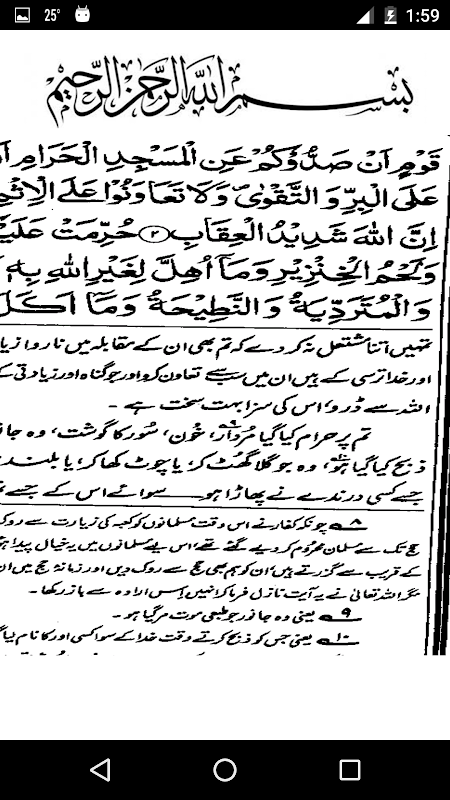 25°
1:59
بسم الله الرحمن الرحيم
قَوْمٍ اَنْ صَدُّوْكُمْ عَنِ الْمَسْجِدِ الْحَرَامِ
عَلَى الْبِرِّ وَالتَّقْوٰى وَلَا تَعَاوَنُوْا عَلَى الْاِثْ
اِنَّ اللهَ شَدِيْدُ الْعِقَابِ ۲ حُرِّمَتْ عَلَيْ
وَلَحْمُ الْخِنْزِيْرِ وَمَاۤ اُهِلَّ لِغَيْرِ اللهِ بِهٖ
وَالْمُتَرَدِّيَةُ وَالنَّطِيْحَةُ وَمَاۤ اَكَلَ
تمہیں اتنا مشتعل نہ کر دے کہ تم بھی ان کے مقابلہ میں ناروا زیا
اور خدا ترسی کے ہیں ان میں سب سے تعاون کرو اور جو گناہ اور زیادتی کے
اللہ سے ڈرو، اس کی سزا بہت سخت ہے۔
تم پر حرام کیا گیا مُردار،۹ خُون، سُور کا گوشت، وہ جا
ذبح کیا گیا ہو،۱۰ وہ جو گلا گھُٹ کر یا چوٹ کھا کر یا بلند
جسے کسی درندے نے پھاڑا ہو۔ سوائے اس کے جسے
۸ چونکہ کفار نے اس وقت مسلمانوں کو کعبہ کی زیارت سے روک
حج تک سے مسلمان محروم کر دیے گئے تھے، اس لیے مسلمانوں میں یہ خیال پیدا ہ
کے قریب سے گزرتے ہیں ان کو ہم بھی حج سے روک دیں اور زمانۂ حج میں ان
مگر اللہ تعالیٰ نے یہ آیت نازل فرما کر انہیں اس ارادہ سے باز رکھا۔
۹ یعنی وہ جانور جو طبعی موت مر گیا ہو۔
۱۰ یعنی جس کو ذبح کرتے وقت خدا کے سوا کسی اور کا نام لیا گ